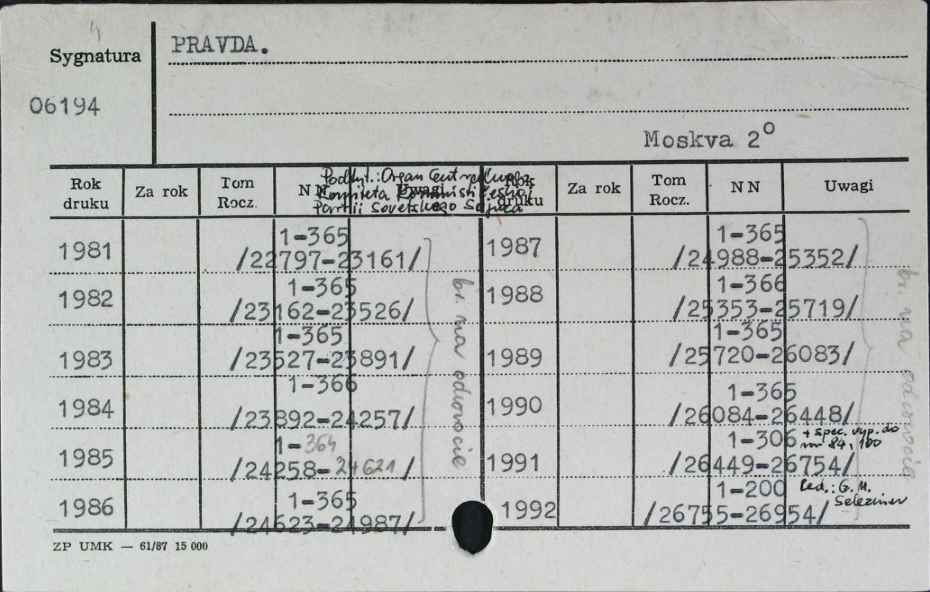 Sygnatura
PRAVDA.
06194
Moskva 2°
Podtyt.: Organ Central'nogo
Komiteta Kommunističeskoj
Partii Sovetskogo Sojuza
Rok druku Za rok Tom Rocz. NN Uwagi Rok druku Za rok Tom Rocz. NN Uwagi
1981 1-365 /22797-23161/
1982 1-365 /23162-23526/
1983 1-365 /23527-23891/
1984 1-366 /23892-24257/
1985 1-364 /24258-24621/
1986 1-365 /24623-24987/
br. na odwrocie
1987 1-365 /24988-25352/
1988 1-366 /25353-25719/
1989 1-365 /25720-26083/
1990 1-365 /26084-26448/
1991 1-306 /26449-26754/ + spec. vyp. do nr 84, 100
1992 1-200 /26755-26954/ Red.: G. M. Seleznev
br. na odwrocie
ZP UMK — 61/87 15 000